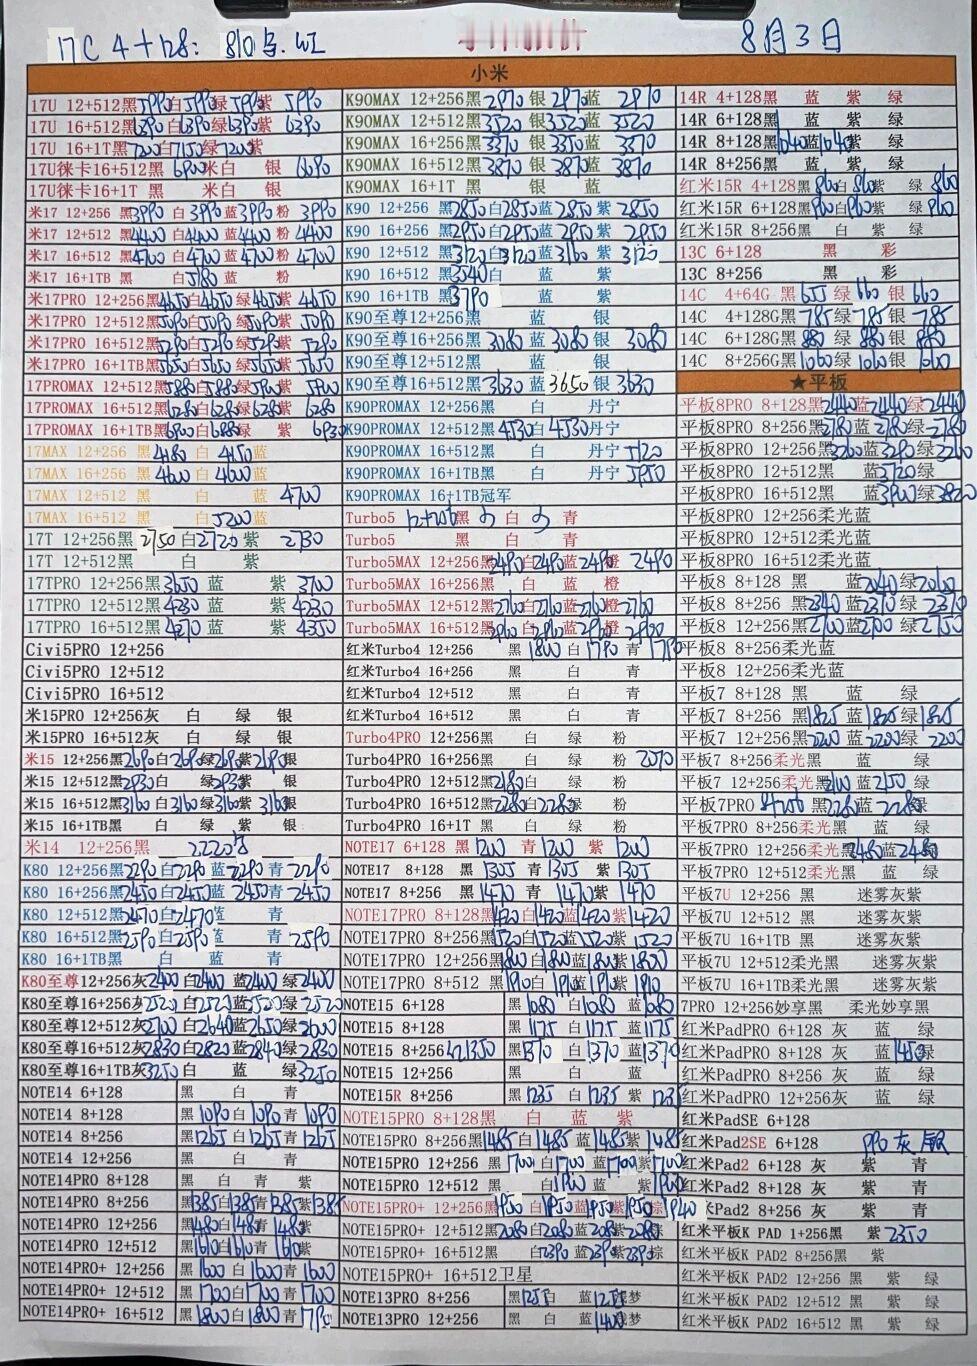 17C 4+128: 810 8月3日
小米
17U 12+512黑5990白5990绿5990紫 5990
17U 16+512黑6390白6390绿6390紫 6390
17U 16+1T黑7200白7150绿7200紫
17U徕卡16+512黑6900米白 银 6690
17U徕卡16+1T 黑 米白 银
米17 12+256 黑3990白3990蓝3990粉 3990
米17 12+512 黑4400白4400蓝4400粉 4400
米17 16+512 黑4700白4700蓝4700粉 4700
米17 16+1TB 黑 白5180蓝 粉
米17PRO 12+256黑4650白4650绿4650紫 4650
米17PRO 12+512黑5090白5090绿5090紫 5090
米17PRO 16+512黑5290白5290绿5290紫 5290
米17PRO 16+1TB黑5650白5650绿5650紫 5650
17PROMAX 12+512黑5880白5880绿5900紫 5900
17PROMAX 16+512黑6280白6280绿6280紫 6280
17PROMAX 16+1TB黑6900白6880绿 紫 6930
17MAX 12+256 黑4180白4150蓝
17MAX 16+256 黑4600白4600蓝
17MAX 12+512 黑 白 蓝 4700
17MAX 16+512 黑 白5200蓝
17T 12+256黑2750白2720紫 2730
17T 12+512黑 白 紫
17TPRO 12+256黑3650蓝 紫 3700
17TPRO 12+512黑4230蓝 紫 4230
17TPRO 16+512黑4270蓝 紫 4350
Civi5PRO 12+256
Civi5PRO 12+512
Civi5PRO 16+512
米15PRO 12+256灰 白 绿 银
米15PRO 16+512灰 白 绿 银
米15 12+256黑2690白2690绿2690紫2690银
米15 12+512黑2930白 绿2930紫 银
米15 16+512黑3160白3160绿3160紫3160银
米15 16+1TB黑 白 绿 紫 银
米14 12+256黑 2220
K80 12+256黑2290白2290蓝2290青2290
K80 16+256黑2450白2450蓝2450青2450
K80 12+512黑2470白2470蓝 青
K80 16+512黑2590白2590蓝 青 2590
K80 16+1TB黑 白 蓝 青
K80至尊12+256灰2400白2400蓝2400绿2400
K80至尊16+256灰2520白2520蓝2520绿2520
K80至尊12+512灰2700白2640蓝2650绿2600
K80至尊16+512灰2830白2820蓝2840绿2830
K80至尊16+1TB灰3250白 蓝 绿 3250
NOTE14 6+128 黑 白 青
NOTE14 8+128 黑1090白1090青1090
NOTE14 8+256 黑1265白1265青1265
NOTE14 12+256 黑 白 青
NOTE14PRO 8+128 黑 白 青 紫
NOTE14PRO 8+256 黑1385白1385青1385紫1385
NOTE14PRO 12+256 黑1480白1480青1480紫
NOTE14PRO 12+512 黑1610白1610青1610紫
NOTE14PRO+ 12+256 黑1600白1600青1600
NOTE14PRO+ 12+512 黑1700白1700青1700
NOTE14PRO+ 16+512 黑1800白1800青1790
K90MAX 12+256黑2970银2970蓝 2970
K90MAX 12+512黑3520银3520蓝 3520
K90MAX 16+256黑3370银3350蓝 3370
K90MAX 16+512黑3870银3870蓝 3870
K90MAX 16+1T 黑 银 蓝
K90 12+256 黑2850白2850蓝2850紫 2850
K90 16+256 黑2950白2950蓝2950紫 2950
K90 12+512 黑3120白3120蓝3160紫 3120
K90 16+512 黑3540白 蓝 紫
K90 16+1TB 黑3790 蓝 紫
K90至尊12+256黑 蓝 银
K90至尊16+256黑3080蓝3080银 3080
K90至尊12+512黑 蓝 银
K90至尊16+512黑3630蓝3650银 3630
K90PROMAX 12+256黑 白 丹宁
K90PROMAX 12+512黑4530白4530丹宁
K90PROMAX 16+512黑 白 丹宁 5120
K90PROMAX 16+1TB黑 白 丹宁 5950
K90PROMAX 16+1TB冠军
Turbo5 12+256黑 白 青
Turbo5 黑 白 青
Turbo5MAX 12+256黑2490白2490蓝2490橙 2490
Turbo5MAX 16+256黑 白 蓝 橙
Turbo5MAX 12+512黑2760白2760蓝2760橙 2760
Turbo5MAX 16+512黑2960白2960蓝2960橙 2960
红米Turbo4 12+256 黑1800白1790青1790
红米Turbo4 16+256 黑 白 青
红米Turbo4 12+512 黑 白 青
红米Turbo4 16+512 黑 白 青
Turbo4PRO 12+256黑 白 绿 粉
Turbo4PRO 16+256黑 白 绿 粉 2070
Turbo4PRO 12+512黑2180白 绿 粉
Turbo4PRO 16+512黑2280白2280绿 粉
Turbo4PRO 16+1T 黑 白 绿 粉
NOTE17 6+128 黑1200青1200紫1200
NOTE17 8+128 黑1305青1305紫1305
NOTE17 8+256 黑1470青1470紫1470
NOTE17PRO 8+128黑1420白1420蓝1420紫1420
NOTE17PRO 8+256黑1520白1520蓝1520紫1520
NOTE17PRO 12+256黑1800白1800蓝1800紫1800
NOTE17PRO 8+512 黑1910白1910蓝1910紫1910
NOTE15 6+128 黑1080白1080蓝1080
NOTE15 8+128 黑1175白1175蓝1175
NOTE15 8+256 黑1370白1370蓝1370
NOTE15 12+256 黑 白 蓝
NOTE15R 8+256 黑1235白1235紫1235
NOTE15PRO 8+128黑 白 蓝 紫
NOTE15PRO 8+256黑1485白1485蓝1485紫1485
NOTE15PRO 12+256 黑1700白1700蓝1700紫1700
NOTE15PRO 12+512 黑 白1900蓝 紫1900
NOTE15PRO+ 12+256黑1950白1950蓝1950紫1950棕1940
NOTE15PRO+ 12+512黑2080白2080蓝2080紫2080棕
NOTE15PRO+ 16+512黑 白2390蓝2390紫2390棕
NOTE15PRO+ 16+512卫星
NOTE13PRO 8+256 黑1255白 蓝1255梦
NOTE13PRO 12+256 黑 白 蓝1400梦
14R 4+128黑 蓝 紫 绿
14R 6+128黑 蓝 紫 绿
14R 8+128黑1040蓝1040紫 绿
14R 8+256黑 蓝 紫 绿
红米15R 4+128黑860白860紫 绿 860
红米15R 6+128黑960白960紫 绿 960
红米15R 8+256黑 白 紫 绿
13C 6+128 黑 彩
13C 8+256 黑 彩
14C 4+64G 黑655绿660银660
14C 4+128G黑785绿785银785
14C 6+128G黑880绿880银880
14C 8+256G黑1060绿1060银1060
★平板
平板8PRO 8+128黑2440蓝2440绿2440
平板8PRO 8+256黑2780蓝2780绿2780
平板8PRO 12+256黑3260蓝3290绿3260
平板8PRO 12+512黑 蓝3720绿
平板8PRO 16+512黑 蓝3900绿3820
平板8PRO 12+256柔光蓝
平板8PRO 12+512柔光蓝
平板8PRO 16+512柔光蓝
平板8 8+128 黑 蓝2040绿2060
平板8 8+256 黑2340蓝2370绿2370
平板8 12+256黑2700蓝2700绿2750
平板8 8+256柔光蓝
平板8 12+256柔光蓝
平板7 8+128 黑 蓝 绿
平板7 8+256 黑1825蓝1825绿1825
平板7 12+256黑2200蓝2200绿2200
平板7 8+256柔光黑 蓝 绿
平板7 12+256柔光黑2100蓝2150绿
平板7PRO 8+256黑2280蓝2280绿
平板7PRO 8+256柔光黑 蓝 绿
平板7PRO 12+256柔光黑2480蓝2480绿
平板7PRO 12+512柔光黑 蓝 绿
平板7U 12+256 黑 迷雾灰紫
平板7U 12+512 黑 迷雾灰紫
平板7U 16+1TB 黑 迷雾灰紫
平板7U 12+512柔光黑 迷雾灰紫
平板7U 16+1TB柔光黑 迷雾灰紫
7PRO 12+256妙享黑 柔光妙享黑
红米PadPRO 6+128 灰 蓝 绿
红米PadPRO 8+128 灰 蓝1450绿
红米PadPRO 8+256 灰 蓝 绿
红米PadPRO 12+256灰 蓝 绿
红米PadSE 6+128
红米Pad2SE 6+128 990灰 银
红米Pad2 6+128 灰 紫 青
红米Pad2 8+128 灰 紫 青
米Pad2 8+256 灰 紫 青
红米平板K PAD 1+256黑 紫2350
红米平板K PAD2 8+256黑 紫
红米平板K PAD2 12+256 黑 紫 绿
红米平板K PAD2 12+512 黑 紫 绿
红米平板K PAD2 16+512 黑 紫 绿